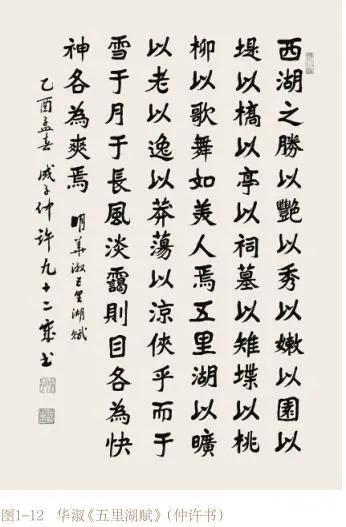 西湖之勝以艷以秀以嫩以園以
堤以橋以亭以祠墓以雉堞以桃
柳以歌舞如美人焉五里湖以曠
以老以逸以莽蕩以涼俠乎而于
雪于月于長風淡靄則目各為快
神各為爽焉
明華淑五里湖賦
乙酉孟春 子仲許九十二歲書
图1-12 华淑《五里湖赋》（仲许书）